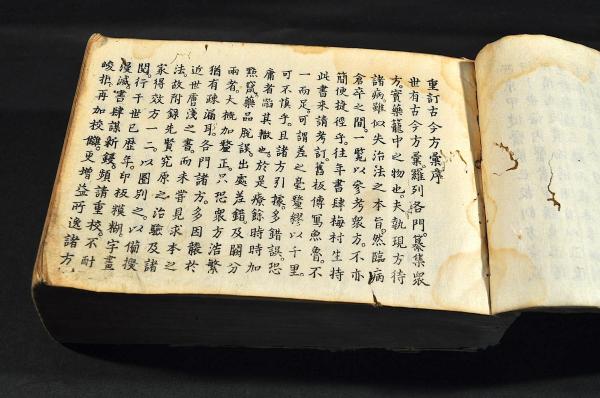 重訂古今方彙序
世有古今方彙。羅列各門。纂集衆
方。實藥籠中之物也。夫執現方待
諸病。雖似失治法之本旨。然臨病
倉卒之間。一覧以參考衆方。不亦
簡便捷徑乎。往年書肆梅村生持
此書來請考訂。舊板傳寫魚魯。不
一而足。可謂差之毫釐。繆以千里。
可不慎乎。且諸方引據。多錯誤。恐
庸者蹈其轍也。於是療餘時時加
㸃竄。藥品脱誤出處差錯。及關分
兩者。大概加釐正。只恐衆方浩繁
猶有疎漏耳。各門諸方。多因襲於
近世膚淺之書。而未甞見求本之
法。故附錄先賢究原之治驗。及諸
家得效方一二。以圈別之。以備搜
閱。行于世已歴年。印板糢糊。字畫
漫滅。書肆謀新鋟。頻請重校。不耐
峻拒。再加校讎。更增益所逸諸方